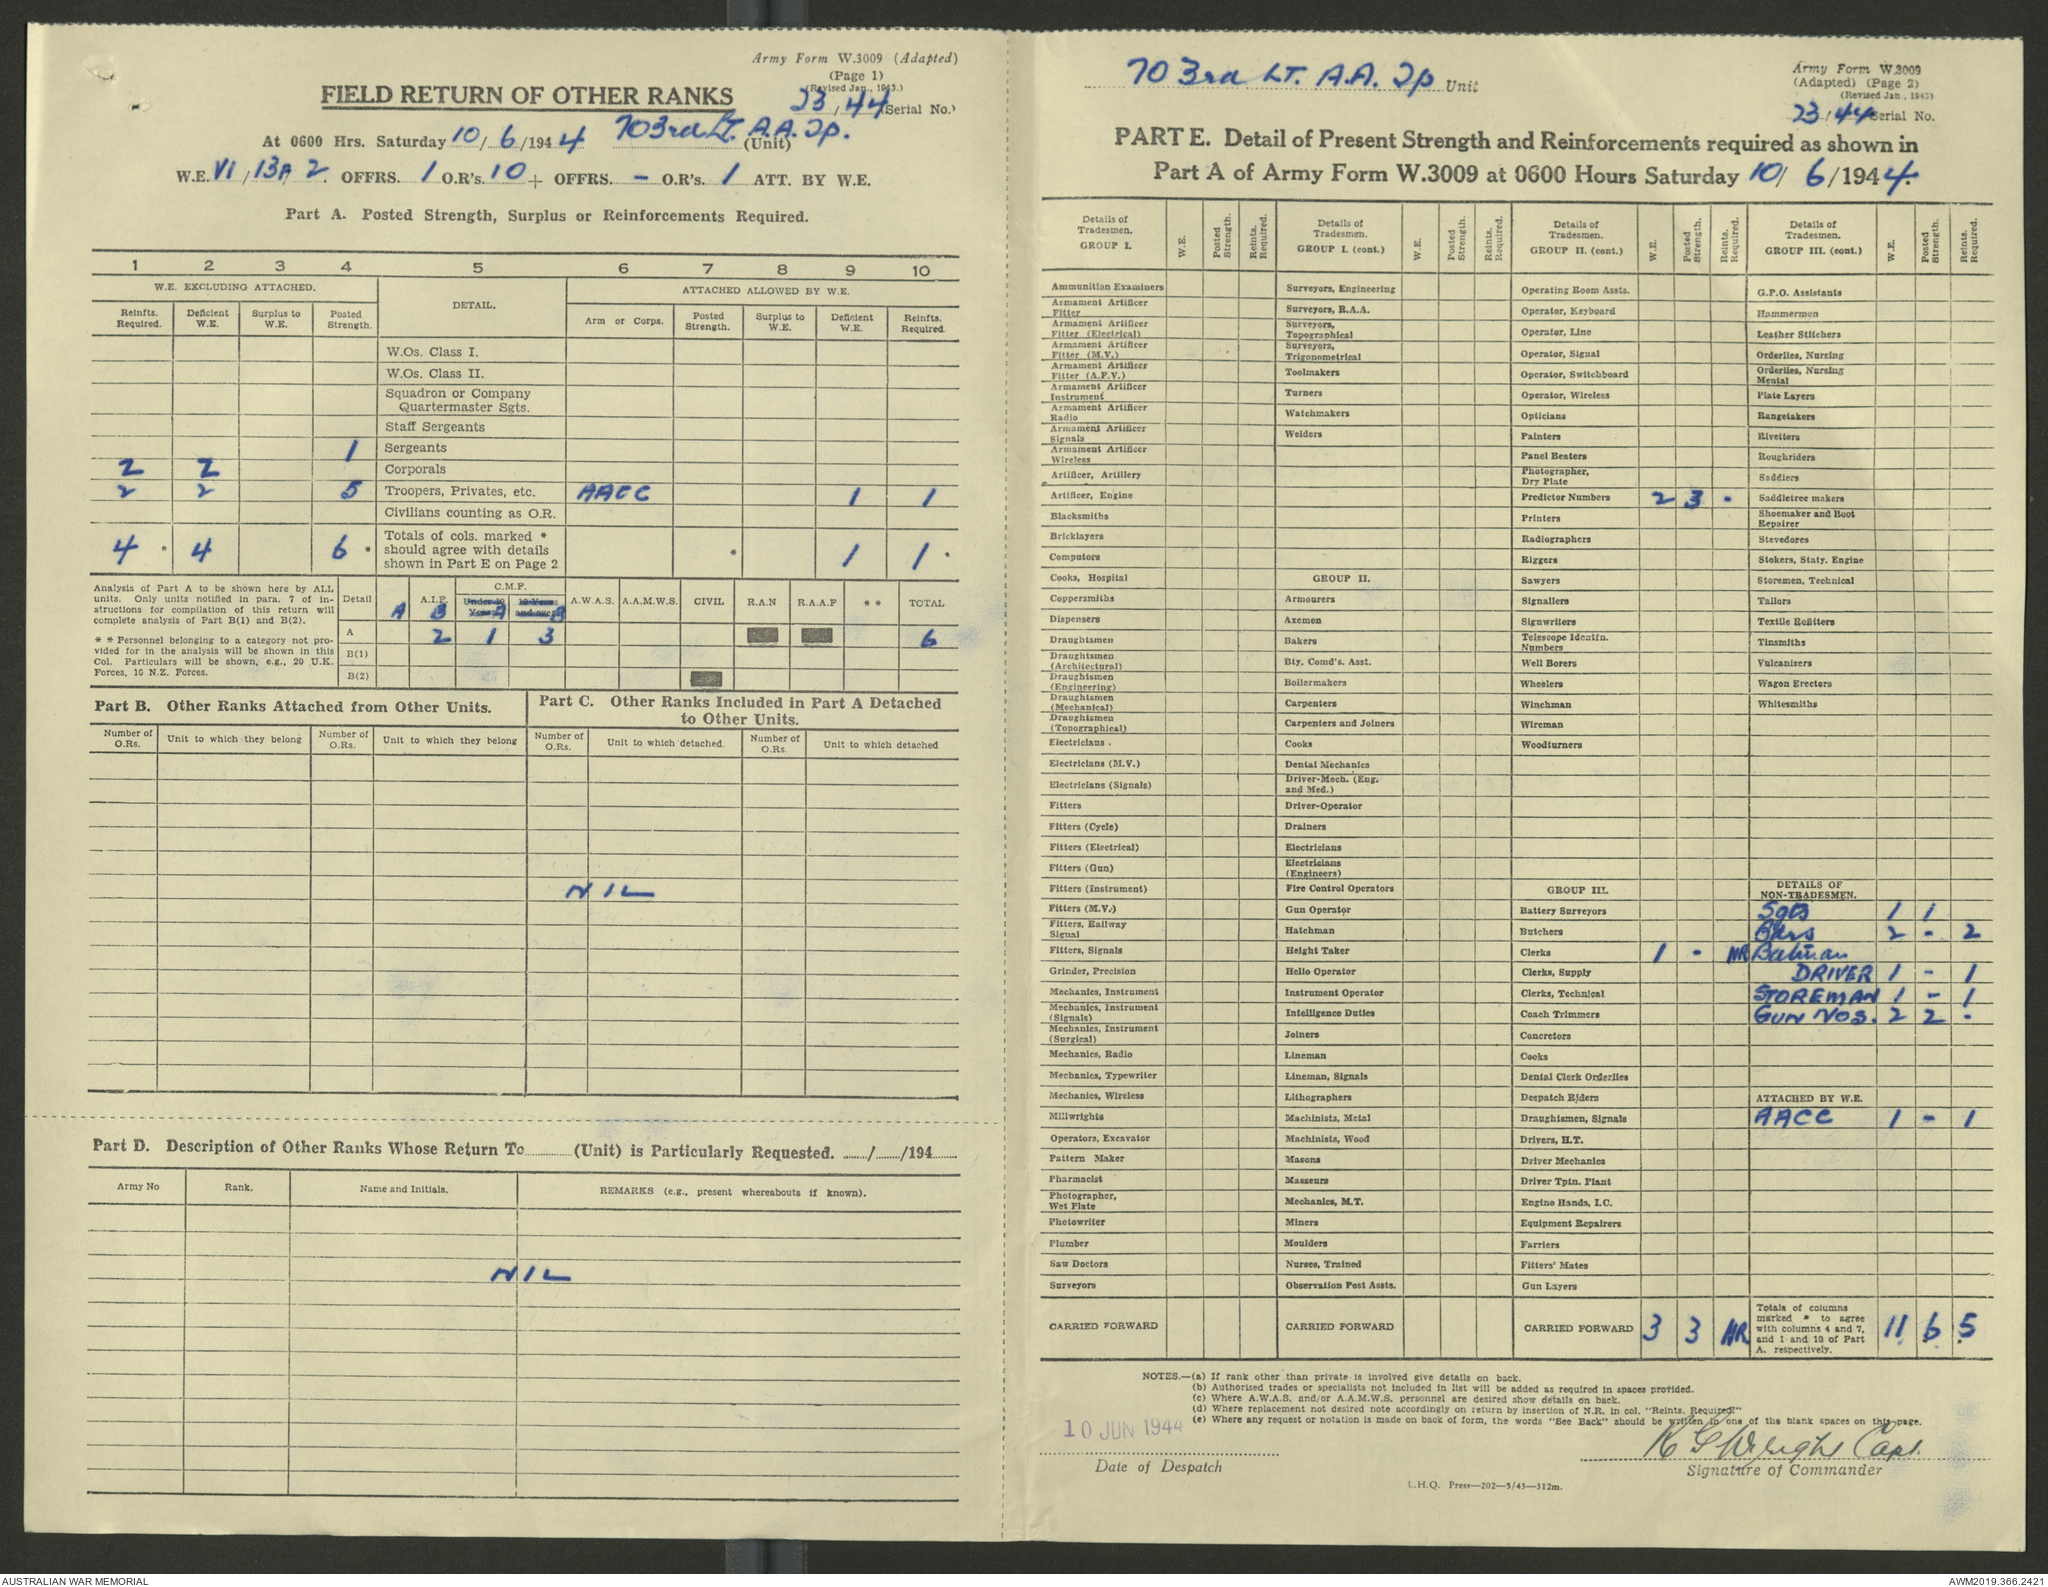 Army Form W.3009 (Adapted)
(Page 1)
(Revised Jan., 1943.)
FIELD RETURN OF OTHER RANKS
23/44 (Serial No.)
At 0600 Hrs. Saturday 10/6/1944 703rd Lt. A.A. Tp. (Unit)
W.E. VI/13A/2. OFFRS. 1 O.R's. 10 + OFFRS. - O.R's. 1 ATT. BY W.E.
Part A. Posted Strength, Surplus or Reinforcements Required.
1 2 3 4 5 6 7 8 9 10
W.E. EXCLUDING ATTACHED. DETAIL. ATTACHED ALLOWED BY W.E.
Reinfts. Required. Deficient W.E. Surplus to W.E. Posted Strength. Arm or Corps. Posted Strength. Surplus to W.E. Deficient W.E. Reinfts. Required.
W.Os. Class I.
W.Os. Class II.
Squadron or Company
Quartermaster Sgts.
Staff Sergeants
1 Sergeants
2 2 Corporals
2 2 5 Troopers, Privates, etc. AACC 1 1
Civilians counting as O.R.
4 * 4 6 * Totals of cols. marked * should agree with details shown in Part E on Page 2. * 1 1 *
Analysis of Part A to be shown here by ALL
units. Only units notified in para. 7 of in-
structions for compilation of this return will
complete analysis of Part B(1) and B(2).
* * Personnel belonging to a category not pro-
vided for in the analysis will be shown in this
Col. Particulars will be shown, e.g., 20 U.K.
Forces, 10 N.Z. Forces.
Detail A.I.F. C.M.F. A.W.A.S. A.A.M.W.S. CIVIL R.A.N R.A.A.F * * TOTAL
A B Under 19 Years A 19 Years and over B
A 2 1 3 6
B(1)
B(2)
Part B. Other Ranks Attached from Other Units.
Part C. Other Ranks Included in Part A Detached
to Other Units.
Number of O.Rs. Unit to which they belong Number of O.Rs. Unit to which they belong Number of O.Rs. Unit to which detached. Number of O.Rs. Unit to which detached
NIL
Part D. Description of Other Ranks Whose Return To............ (Unit) is Particularly Requested. ....../....../194......
Army No Rank. Name and Initials. REMARKS (e.g., present whereabouts if known).
NIL
703rd LT. A.A. Tp Unit
Army Form W.3009
(Adapted) (Page 2)
(Revised Jan., 1943)
23/44 Serial No.
PART E. Detail of Present Strength and Reinforcements required as shown in
Part A of Army Form W.3009 at 0600 Hours Saturday 10/6/1944.
Details of Tradesmen. GROUP I. W.E. Posted Strength. Reints. Required.
Ammunition Examiners
Armament Artificer Fitter
Armament Artificer Fitter (Electrical)
Armament Artificer Fitter (M.V.)
Armament Artificer Fitter (A.F.V.)
Armament Artificer Instrument
Armament Artificer Radio
Armament Artificer Signals
Armament Artificer Wireless
Artificer, Artillery
Artificer, Engine
Blacksmiths
Bricklayers
Computors
Cooks, Hospital
Coppersmiths
Dispensers
Draughtsmen
Draughtsmen (Architectural)
Draughtsmen (Engineering)
Draughtsmen (Mechanical)
Draughtsmen (Topographical)
Electricians .
Electricians (M.V.)
Electricians (Signals)
Fitters
Fitters (Cycle)
Fitters (Electrical)
Fitters (Gun)
Fitters (Instrument)
Fitters (M.V.)
Fitters, Railway Signal
Fitters, Signals
Grinder, Precision
Mechanics, Instrument
Mechanics, Instrument (Signals)
Mechanics, Instrument (Surgical)
Mechanics, Radio
Mechanics, Typewriter
Mechanics, Wireless
Millwrights
Operators, Excavator
Pattern Maker
Pharmacist
Photographer, Wet Plate
Photowriter
Plumber
Saw Doctors
Surveyors
CARRIED FORWARD
Details of Tradesmen. GROUP I. (cont.) W.E. Posted Strength. Reints. Required.
Surveyors, Engineering
Surveyors, R.A.A.
Surveyors, Topographical
Surveyors, Trigonometrical
Toolmakers
Turners
Watchmakers
Welders
GROUP II.
Armourers
Axemen
Bakers
Bty. Comd's. Asst.
Boilermakers
Carpenters
Carpenters and Joiners
Cooks
Dental Mechanics
Driver-Mech. (Eng. and Med.)
Driver-Operator
Drainers
Electricians
Electricians (Engineers)
Fire Control Operators
Gun Operator
Hatchman
Height Taker
Helio Operator
Instrument Operator
Intelligence Duties
Joiners
Lineman
Lineman, Signals
Lithographers
Machinists, Metal
Machinists, Wood
Masons
Masseurs
Mechanics, M.T.
Miners
Moulders
Nurses, Trained
Observation Post Assts.
CARRIED FORWARD
Details of Tradesmen. GROUP II. (cont.) W.E. Posted Strength. Reints. Required.
Operating Room Assts.
Operator, Keyboard
Operator, Line
Operator, Signal
Operator, Switchboard
Operator, Wireless
Opticians
Painters
Panel Beaters
Photographer, Dry Plate
Predictor Numbers 2 3 -
Printers
Radiographers
Riggers
Sawyers
Signallers
Signwriters
Telescope Identfn. Numbers
Well Borers
Wheelers
Winchman
Wireman
Woodturners
GROUP III.
Battery Surveyors
Butchers
Clerks 1 - NR
Clerks, Supply
Clerks, Technical
Coach Trimmers
Concretors
Cooks
Dental Clerk Orderlies
Despatch Riders
Draughtsmen, Signals
Drivers, H.T.
Driver Mechanics
Driver Tptn. Plant
Engine Hands, I.C.
Equipment Repairers
Farriers
Fitters' Mates
Gun Layers
CARRIED FORWARD 3 3 NR
Details of Tradesmen. GROUP III. (cont.) W.E. Posted Strength. Reints. Required.
G.P.O. Assistants
Hammermen
Leather Stitchers
Orderlies, Nursing
Orderlies, Nursing Mental
Plate Layers
Rangetakers
Rivetters
Roughriders
Saddlers
Saddletree makers
Shoemaker and Boot Repairer
Stevedores
Stokers, Staty. Engine
Storemen, Technical
Tailors
Textile Refitters
Tinsmiths
Vulcanizers
Wagon Erectors
Whitesmiths
DETAILS OF
NON-TRADESMEN.
Sgts 1 1
Bdrs 2 - 2
Batman
DRIVER 1 - 1
STOREMAN 1 - 1
GUN NOS. 2 2 -
ATTACHED BY W.E.
AACC 1 - 1
Totals of columns marked * to agree with columns 4 and 7, and 1 and 10 of Part A. respectively. 11 6 5
NOTES.—(a) If rank other than private is involved give details on back.
(b) Authorised trades or specialists not included in list will be added as required in spaces provided.
(c) Where A.W.A.S. and/or A.A.M.W.S. personnel are desired show details on back.
(d) Where replacement not desired note accordingly on return by insertion of N.R. in col. "Reints. Required"
(e) Where any request or notation is made on back of form, the words "See Back" should be written in one of the blank spaces on this page.
10 JUN 1944
Date of Despatch
R G Wright Capt.
Signature of Commander
L.H.Q. Press—202—5/43—312m.
AUSTRALIAN WAR MEMORIAL
AWM2019.366.2421